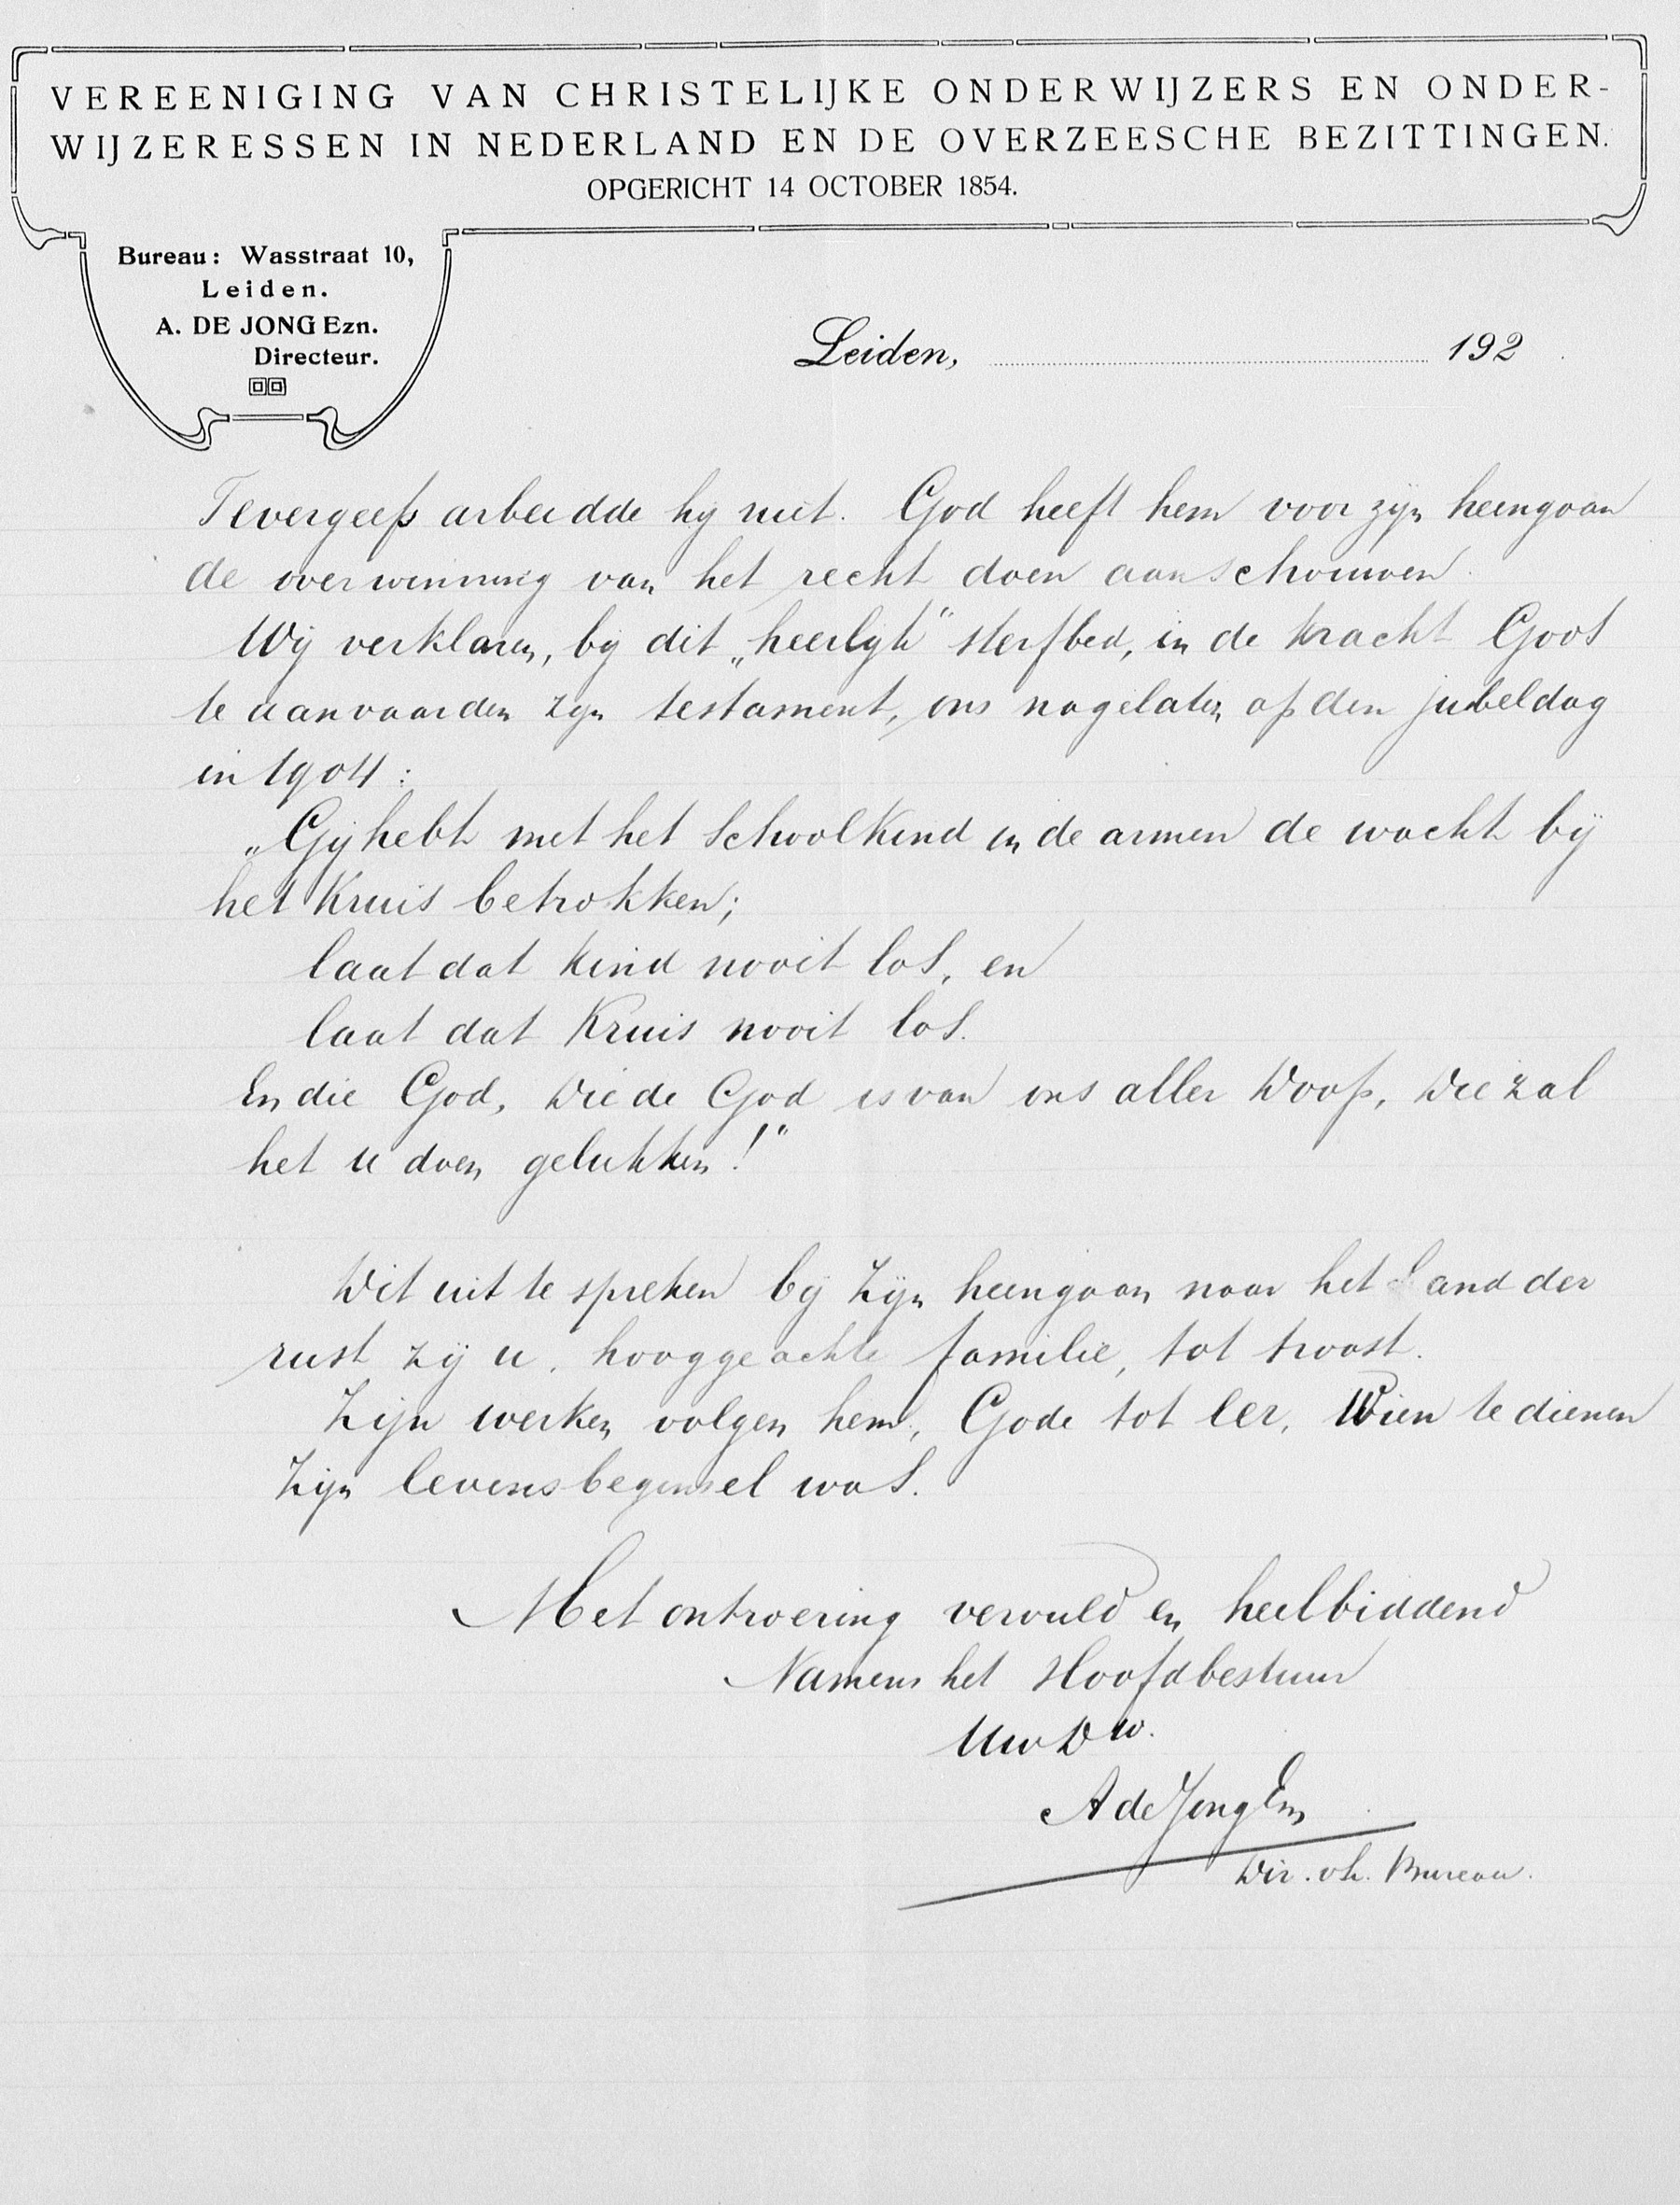 VEREENIGING VAN CHRISTELIJKE ONDERWIJZERS EN ONDER-
WIJZERESSEN IN NEDERLAND EN DE OVERZEESCHE BEZITTINGEN.
OPGERICHT 14 OCTOBER 1854.
Bureau: Wasstraat 10,
Leiden.
A. DE JONG Ezn.
Directeur.
Leiden, 192
Tevergeefs arbeidde hij niet. God heeft hem voor zijn heengaan
de overwinning van het recht doen aanschouwen.
Wij verklaren, bij dit „heerlijk" sterfbed, in de kracht Gods
te aanvaarden zijn testament, ons nagelaten op den jubeldag
in 1904:
„Gij hebt met het schoolkind in de armen de wacht bij
het Kruis betrokken;
laat dat kind nooit los, en
laat dat Kruis nooit los.
En die God, Die de God is van ons aller Doop, Die zal
het u doen gelukken!"
Dit uit te spreken bij zijn heengaan naar het Land der
rust zij u, hooggeachte familie, tot troost.
Zijn werken volgen hem, Gode tot eer, Wien te dienen
zijn levensbeginsel was.
Met ontroering vervuld en heilbiddend
Namens het Hoofdbestuur
Uw Dw.
A de Jong Ezn
Dir. v.h. Bureau.